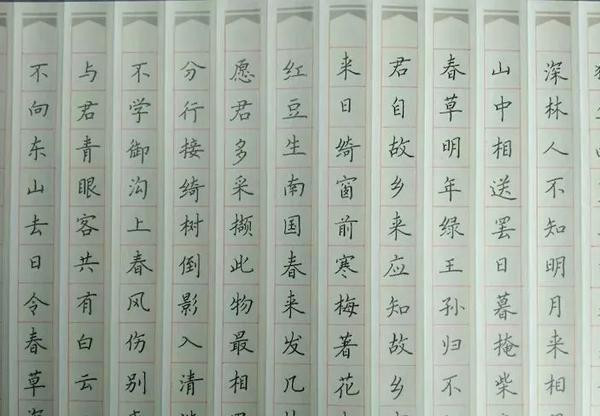 深林人不知明月来相
山中相送罢日暮掩柴
春草明年绿王孙归不
君自故乡来应知故乡
来日绮窗前寒梅著花
红豆生南国春来发几
愿君多采撷此物最相
分行接绮树倒影入清
不学御沟上春风伤别
与君青眼客共有白云
不向东山去日令春草